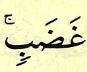 غَضَبٍۚ